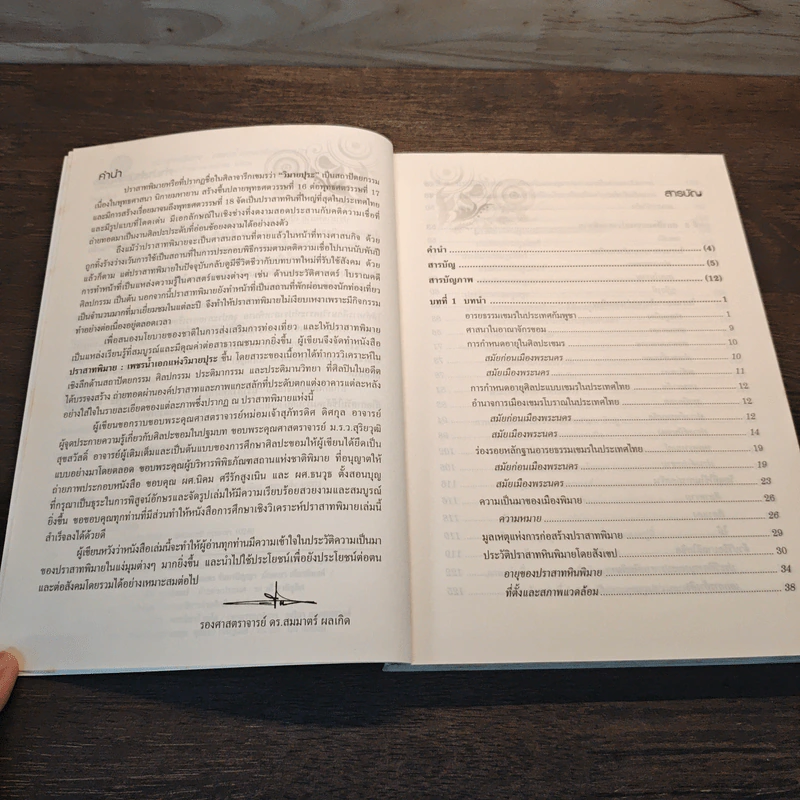 คำนำ
ปราสาทพิมายหรือที่ปรากฏชื่อในศิลาจารึกเขมรว่า "วิมายปุระ" เป็นสถาปัตยกรรม
เนื่องในพุทธศาสนา นิกายมหายาน สร้างขึ้นปลายพุทธศตวรรษที่ 16 ต่อพุทธศตวรรษที่ 17
และมีการสร้างเรื่อยมาจนถึงพุทธศตวรรษที่ 18 จัดเป็นปราสาทหินที่ใหญ่ที่สุดในประเทศไทย
และมีรูปแบบที่โดดเด่น มีเอกลักษณ์ในเชิงช่างที่งดงามสอดประสานกับคติความเชื่อที่
ถ่ายทอดมาเป็นงานศิลปะประดับที่อ่อนช้อยงดงามได้อย่างลงตัว
ถึงแม้ว่าปราสาทพิมายจะเป็นศาสนสถานที่ตายแล้วในหน้าที่ทางศาสนกิจ ด้วย
ถูกทิ้งร้างว่างเว้นการใช้เป็นสถานที่ในการประกอบพิธีกรรมตามคติความเชื่อไปนานนับพันปี
แล้วก็ตาม แต่ปราสาทพิมายในปัจจุบันกลับดูมีชีวิตชีวากับบทบาทใหม่ที่รับใช้สังคม ด้วย
การทำหน้าที่เป็นแหล่งความรู้ในศาสตร์แขนงต่างๆ เช่น ด้านประวัติศาสตร์ โบราณคดี
ศิลปกรรม เป็นต้น นอกจากนี้ปราสาทพิมายยังทำหน้าที่เป็นสถานที่พักผ่อนของนักท่องเที่ยว
เป็นจำนวนมากที่มาเยี่ยมชมในแต่ละปี จึงทำให้ปราสาทพิมายไม่เงียบเหงาเพราะมีกิจกรรม
ทำอย่างต่อเนื่องอยู่ตลอดเวลา
เพื่อสนองนโยบายของชาติในการส่งเสริมการท่องเที่ยว และให้ปราสาทพิมาย
เป็นแหล่งเรียนรู้ที่สมบูรณ์และมีคุณค่าต่อสาธารณชนมากยิ่งขึ้น ผู้เขียนจึงจัดทำหนังสือ
ปราสาทพิมาย : เพชรน้ำเอกแห่งวิมายปุระ ขึ้น โดยสาระของเนื้อหาได้ทำการวิเคราะห์ใน
เชิงลึกด้านสถาปัตยกรรม ศิลปกรรม ประติมากรรม และประติมานวิทยา ที่ศิลปินในอดีต
ได้บรรจงสร้าง ถ่ายทอดผ่านองค์ปราสาทและภาพแกะสลักที่ประดับตกแต่งอาคารแต่ละหลัง
อย่างใส่ใจในรายละเอียดของแต่ละภาพซึ่งปรากฏ ณ ปราสาทพิมายแห่งนี้
ผู้เขียนขอกราบขอบพระคุณศาสตราจารย์หม่อมเจ้าสุภัทรดิศ ดิศกุล อาจารย์
ผู้จุดประกายความรู้เกี่ยวกับศิลปะขอมในปฐมบท ขอบพระคุณศาสตราจารย์ ม.ร.ว.สุริยวุฒิ
สุขสวัสดิ์ อาจารย์ผู้เติมเต็มและเป็นต้นแบบของการศึกษาศิลปะขอมให้ผู้เขียนได้ยึดเป็น
แบบอย่างมาโดยตลอด ขอบพระคุณผู้บริหารพิพิธภัณฑสถานแห่งชาติพิมาย ที่อนุญาตให้
ถ่ายภาพประกอบหนังสือ ขอบคุณ ผศ.นิคม ศรีรักสูงเนิน และ ผศ.ธนวุธ ตั้งสอนบุญ
ที่กรุณาเป็นธุระในการพิสูจน์อักษรและจัดรูปเล่มให้มีความเรียบร้อยสวยงามและสมบูรณ์
ยิ่งขึ้น ขอขอบคุณทุกท่านที่มีส่วนทำให้หนังสือการศึกษาเชิงวิเคราะห์ปราสาทพิมายเล่มนี้
สำเร็จลงได้ด้วยดี
ผู้เขียนหวังว่าหนังสือเล่มนี้จะทำให้ผู้อ่านทุกท่านมีความเข้าใจในประวัติความเป็นมา
ของปราสาทพิมายในแง่มุมต่างๆ มากยิ่งขึ้น และนำไปใช้ประโยชน์เพื่อยังประโยชน์ต่อตน
และต่อสังคมโดยรวมได้อย่างเหมาะสมต่อไป
รองศาสตราจารย์ ดร.สมมาตร์ ผลเกิด
สารบัญ
คำนำ (4)
สารบัญ (5)
สารบัญภาพ (12)
บทที่ 1 บทนำ 1
อารยธรรมเขมรในประเทศกัมพูชา 1
ศาสนาในอาณาจักรขอม 9
การกำหนดอายุในศิลปะเขมร 10
สมัยก่อนเมืองพระนคร 10
สมัยเมืองพระนคร 11
การกำหนดอายุศิลปะแบบเขมรในประเทศไทย 12
อำนาจการเมืองเขมรโบราณในประเทศไทย 12
สมัยก่อนเมืองพระนคร 12
สมัยเมืองพระนคร 14
ร่องรอยหลักฐานอารยธรรมเขมรในประเทศไทย 19
สมัยก่อนเมืองพระนคร 19
สมัยเมืองพระนคร 23
ความเป็นมาของเมืองพิมาย 26
ความหมาย 26
มูลเหตุแห่งการก่อสร้างปราสาทพิมาย 29
ประวัติปราสาทหินพิมายโดยสังเขป 30
อายุของปราสาทหินพิมาย 34
ที่ตั้งและสภาพแวดล้อม 38